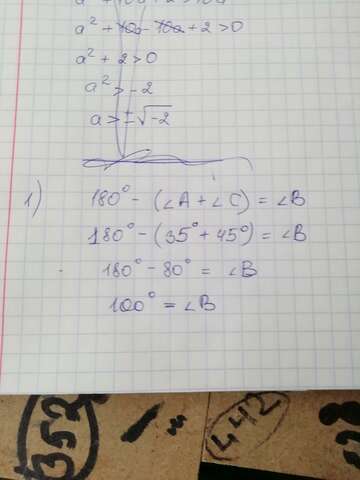 a² + 10a - 10a + 2 > 0
a² + 2 > 0
a² > -2
a > ±√-2
1) 180° - (∠A + ∠C) = ∠B
180° - (35° + 45°) = ∠B
180° - 80° = ∠B
100° = ∠B
352
442